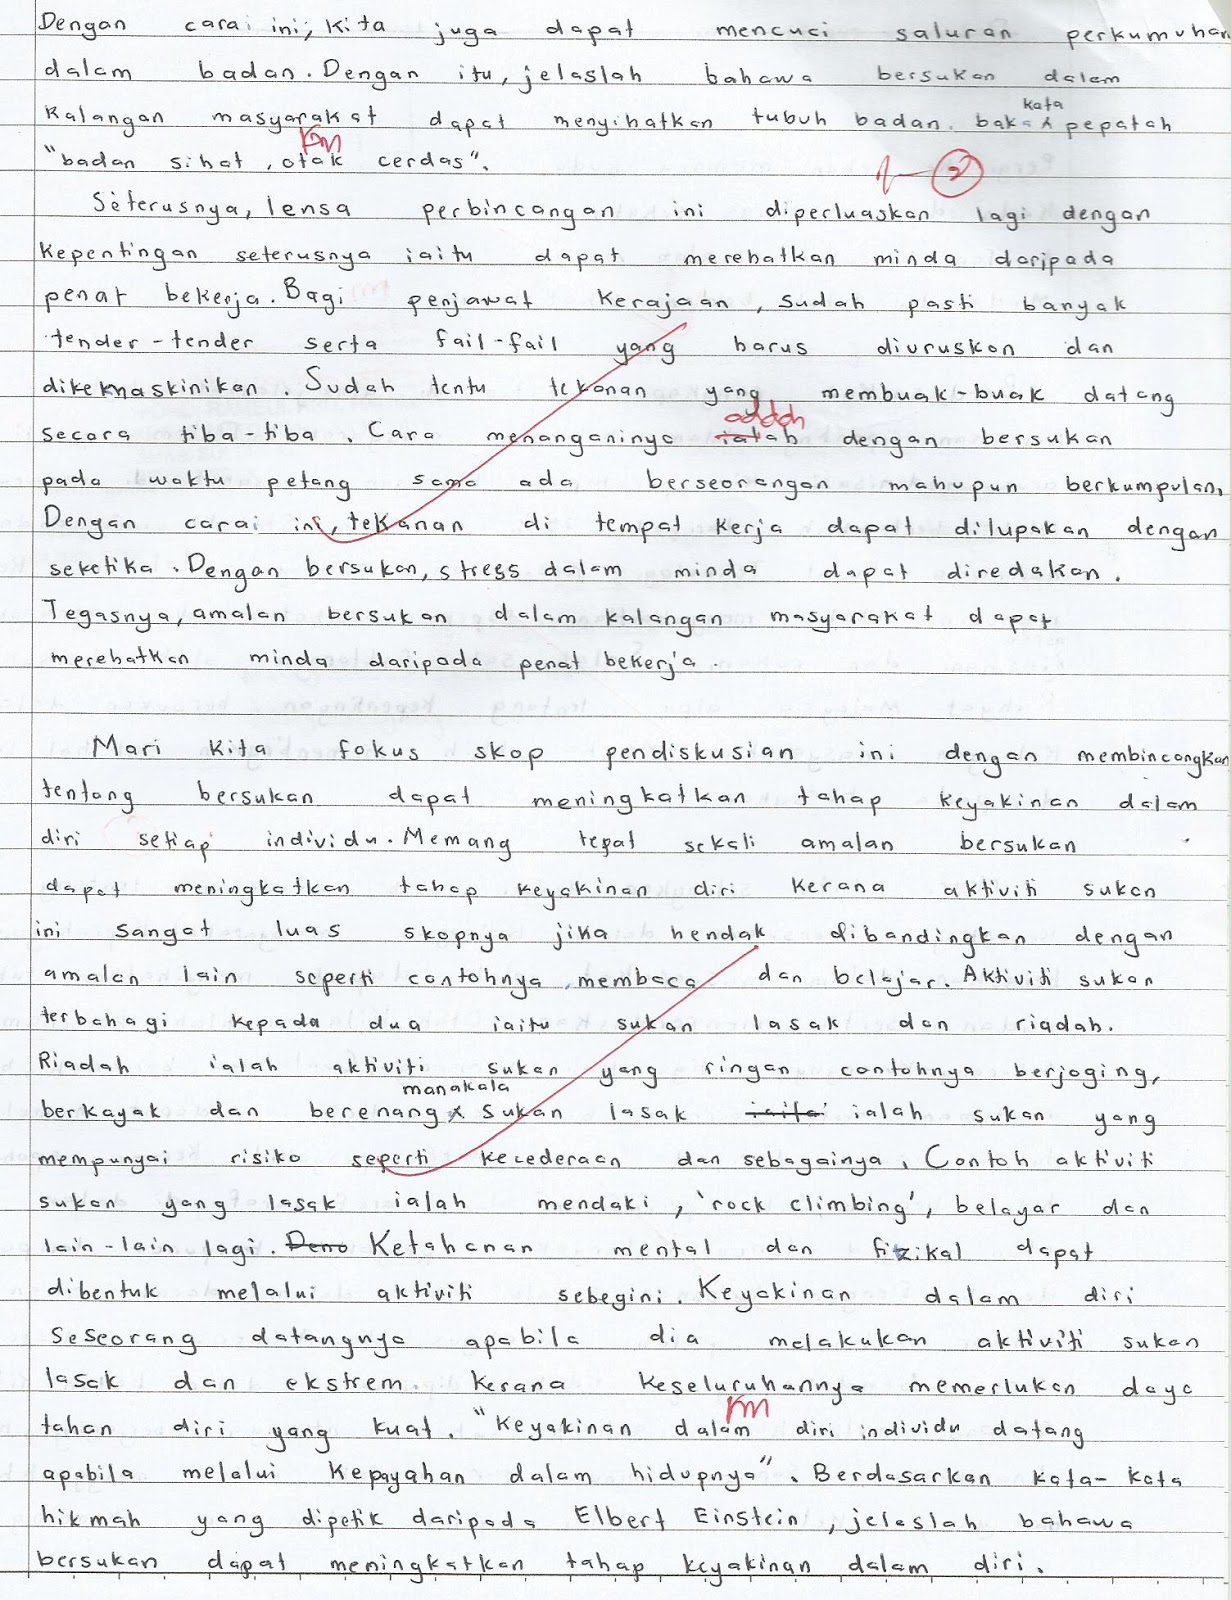 Dengan carai ini, kita juga dapat mencuci saluran perkumuhan
dalam badan. Dengan itu, jelaslah bahawa bersukan dalam
kalangan masyarakat dapat menyihatkan tubuh badan. bak kata pepatah
KM
"badan sihat, otak cerdas".
2
Seterusnya, lensa perbincangan ini diperluaskan lagi dengan
kepentingan seterusnya iaitu dapat merehatkan minda daripada
penat bekerja. Bagi penjawat kerajaan, sudah pasti banyak
tender-tender serta fail-fail yang harus diuruskan dan
dikemaskinikan. Sudah tentu tekanan yang membuak-buak datang
adalah
secara tiba-tiba. Cara menanganinya ialah dengan bersukan
pada waktu petang sama ada berseorangan mahupun berkumpulan.
Dengan carai ini, tekanan di tempat kerja dapat dilupakan dengan
seketika. Dengan bersukan, stress dalam minda dapat diredakan.
Tegasnya, amalan bersukan dalam kalangan masyarakat dapat
merehatkan minda daripada penat bekerja.
Mari kita fokus skop pendiskusian ini dengan membincangkan
tentang bersukan dapat meningkatkan tahap keyakinan dalam
diri setiap individu. Memang tepat sekali amalan bersukan
dapat meningkatkan tahap keyakinan diri kerana aktiviti sukan
ini sangat luas skopnya jika hendak dibandingkan dengan
amalan lain seperti contohnya, membaca dan belajar. Aktiviti sukan
terbahagi kepada dua iaitu sukan lasak dan riadah.
Riadah ialah aktiviti sukan yang ringan contohnya berjoging,
berkayak dan berenang manakala sukan lasak iaitu ialah sukan yang
mempunyai risiko seperti kecederaan dan sebagainya. Contoh aktiviti
sukan yang lasak ialah mendaki, 'rock climbing', belayar dan
lain-lain lagi. Ketahanan mental dan fizikal dapat
dibentuk melalui aktiviti sebegini. Keyakinan dalam diri
seseorang datangnya apabila dia melakukan aktiviti sukan
lasak dan ekstrem. Kerana keseluruhannya memerlukan daya
KM
tahan diri yang kuat. "Keyakinan dalam diri individu datang
apabila melalui kepayahan dalam hidupnya". Berdasarkan kata-kata
hikmah yang dipetik daripada Elbert Einstein, jelaslah bahawa
bersukan dapat meningkatkan tahap keyakinan dalam diri.